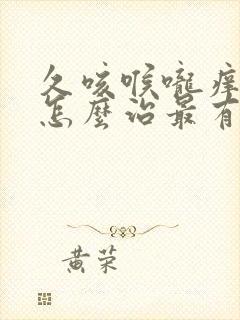 久咳喉嚨痒
怎麼治最有
黄荣